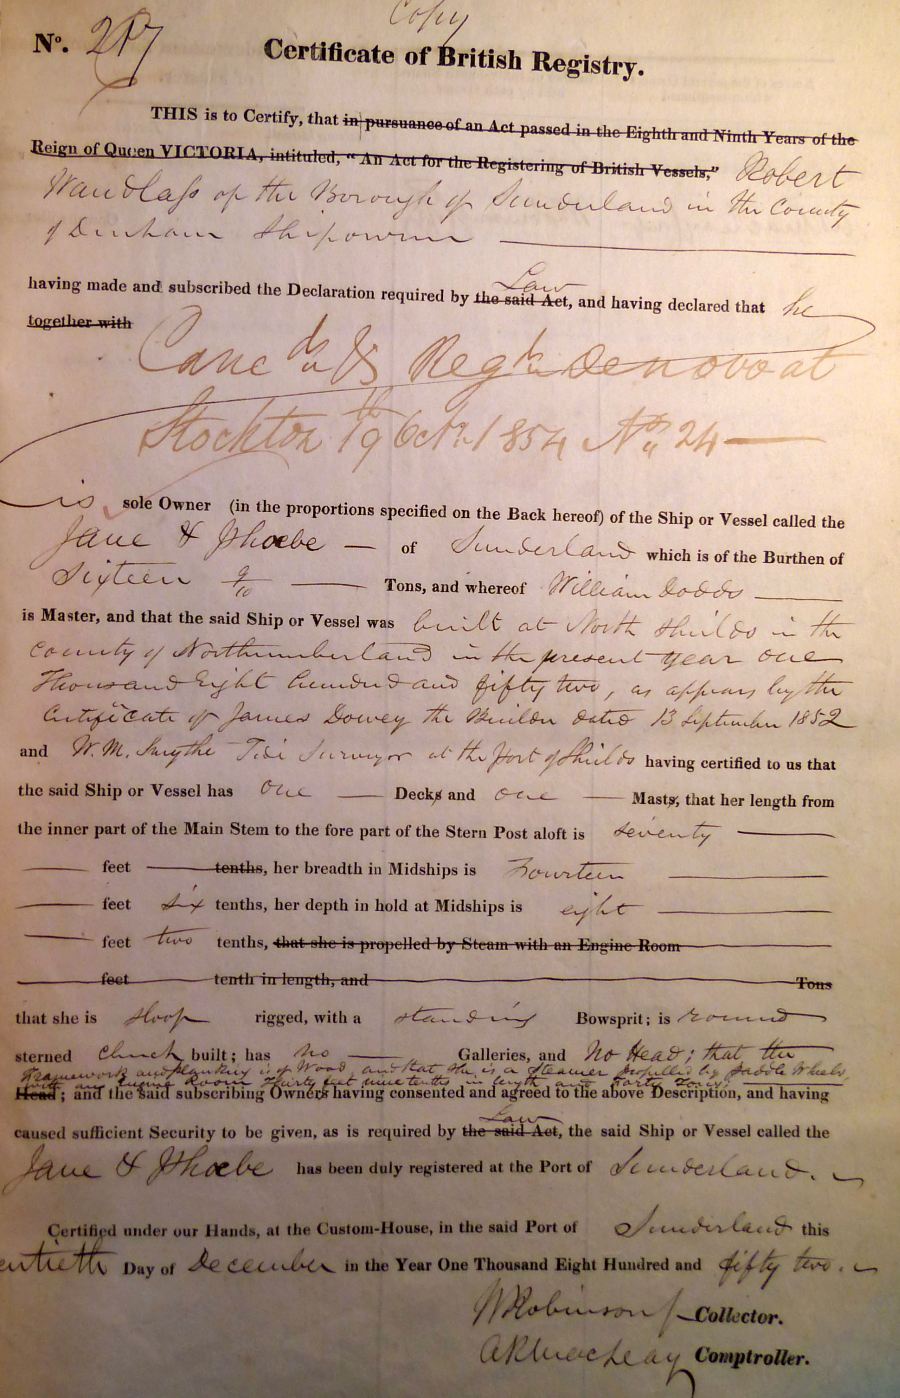 Copy
No. 217
Certificate of British Registry.
THIS is to Certify, that in pursuance of an Act passed in the Eighth and Ninth Years of the
Reign of Queen VICTORIA, intituled, "An Act for the Registering of British Vessels," Robert
Wandlass of the Borough of Sunderland in the County
of Durham Shipowner
having made and subscribed the Declaration required by the said Act, Law and having declared that he
together with
Canc d & Reg d Denovo at
Stockton 19 Octr 1854 No 24
is sole Owner (in the proportions specified on the Back hereof) of the Ship or Vessel called the
Jane & Phoebe of Sunderland which is of the Burthen of
Sixteen 9/10 Tons, and whereof William Dodds
is Master, and that the said Ship or Vessel was built at North Shields in the
County of Northumberland in the present year one
Thousand Eight hundred and fifty two, as appears by the
Certificate of James Dowey the Builder dated 13 September 1852
and W. M. Smythe Tide Surveyor at the Port of Shields having certified to us that
the said Ship or Vessel has one Decks and one Masts, that her length from
the inner part of the Main Stem to the fore part of the Stern Post aloft is seventy
feet tenths, her breadth in Midships is Fourteen
feet six tenths, her depth in hold at Midships is eight
feet two tenths, that she is propelled by Steam with an Engine Room
feet tenth in length, and Tons
that she is Sloop rigged, with a standing Bowsprit; is round
sterned Clench built; has no Galleries, and No Head; that the
Framework and planking is of Wood, and that she is a Steamer propelled by Paddle Wheels,
with an Engine Room Thirty feet nine tenths in length and Forty Tons
Head; and the said subscribing Owners having consented and agreed to the above Description, and having
caused sufficient Security to be given, as is required by the said Act, Law the said Ship or Vessel called the
Jane & Phoebe has been duly registered at the Port of Sunderland.
Certified under our Hands, at the Custom-House, in the said Port of Sunderland this
entieth Day of December in the Year One Thousand Eight Hundred and fifty two.
W Robinson Collector.
Comptroller.